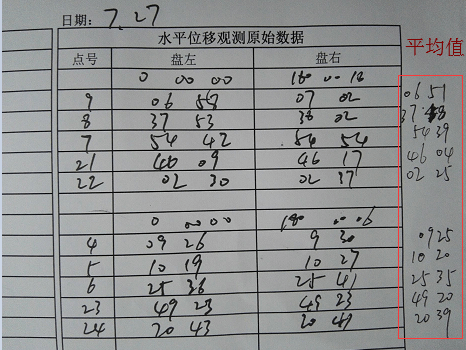 日期: 7.27
水平位移观测原始数据
点号 盘左 盘右 平均值
0 00 00 180 00 18
9 06 58 07 02 06 51
8 37 53 38 02 37 58
7 54 42 54 54 54 39
21 46 09 46 17 46 04
22 02 30 02 37 02 25
0 00 00 180 00 06
4 09 26 9 30 09 25
5 10 19 10 27 10 20
6 25 36 25 41 25 35
23 49 23 49 23 49 20
24 20 43 20 41 20 39